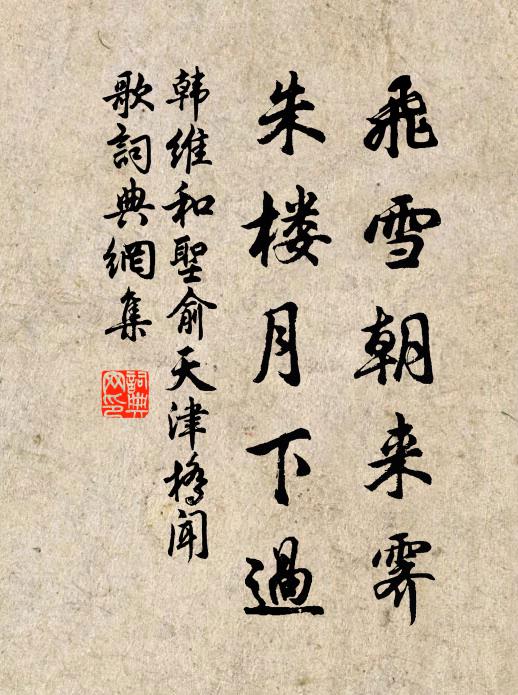 飛雪朝来霽
朱楼月下過
韩维和聖俞天津橋闻
歌詞典網集
詞典网印